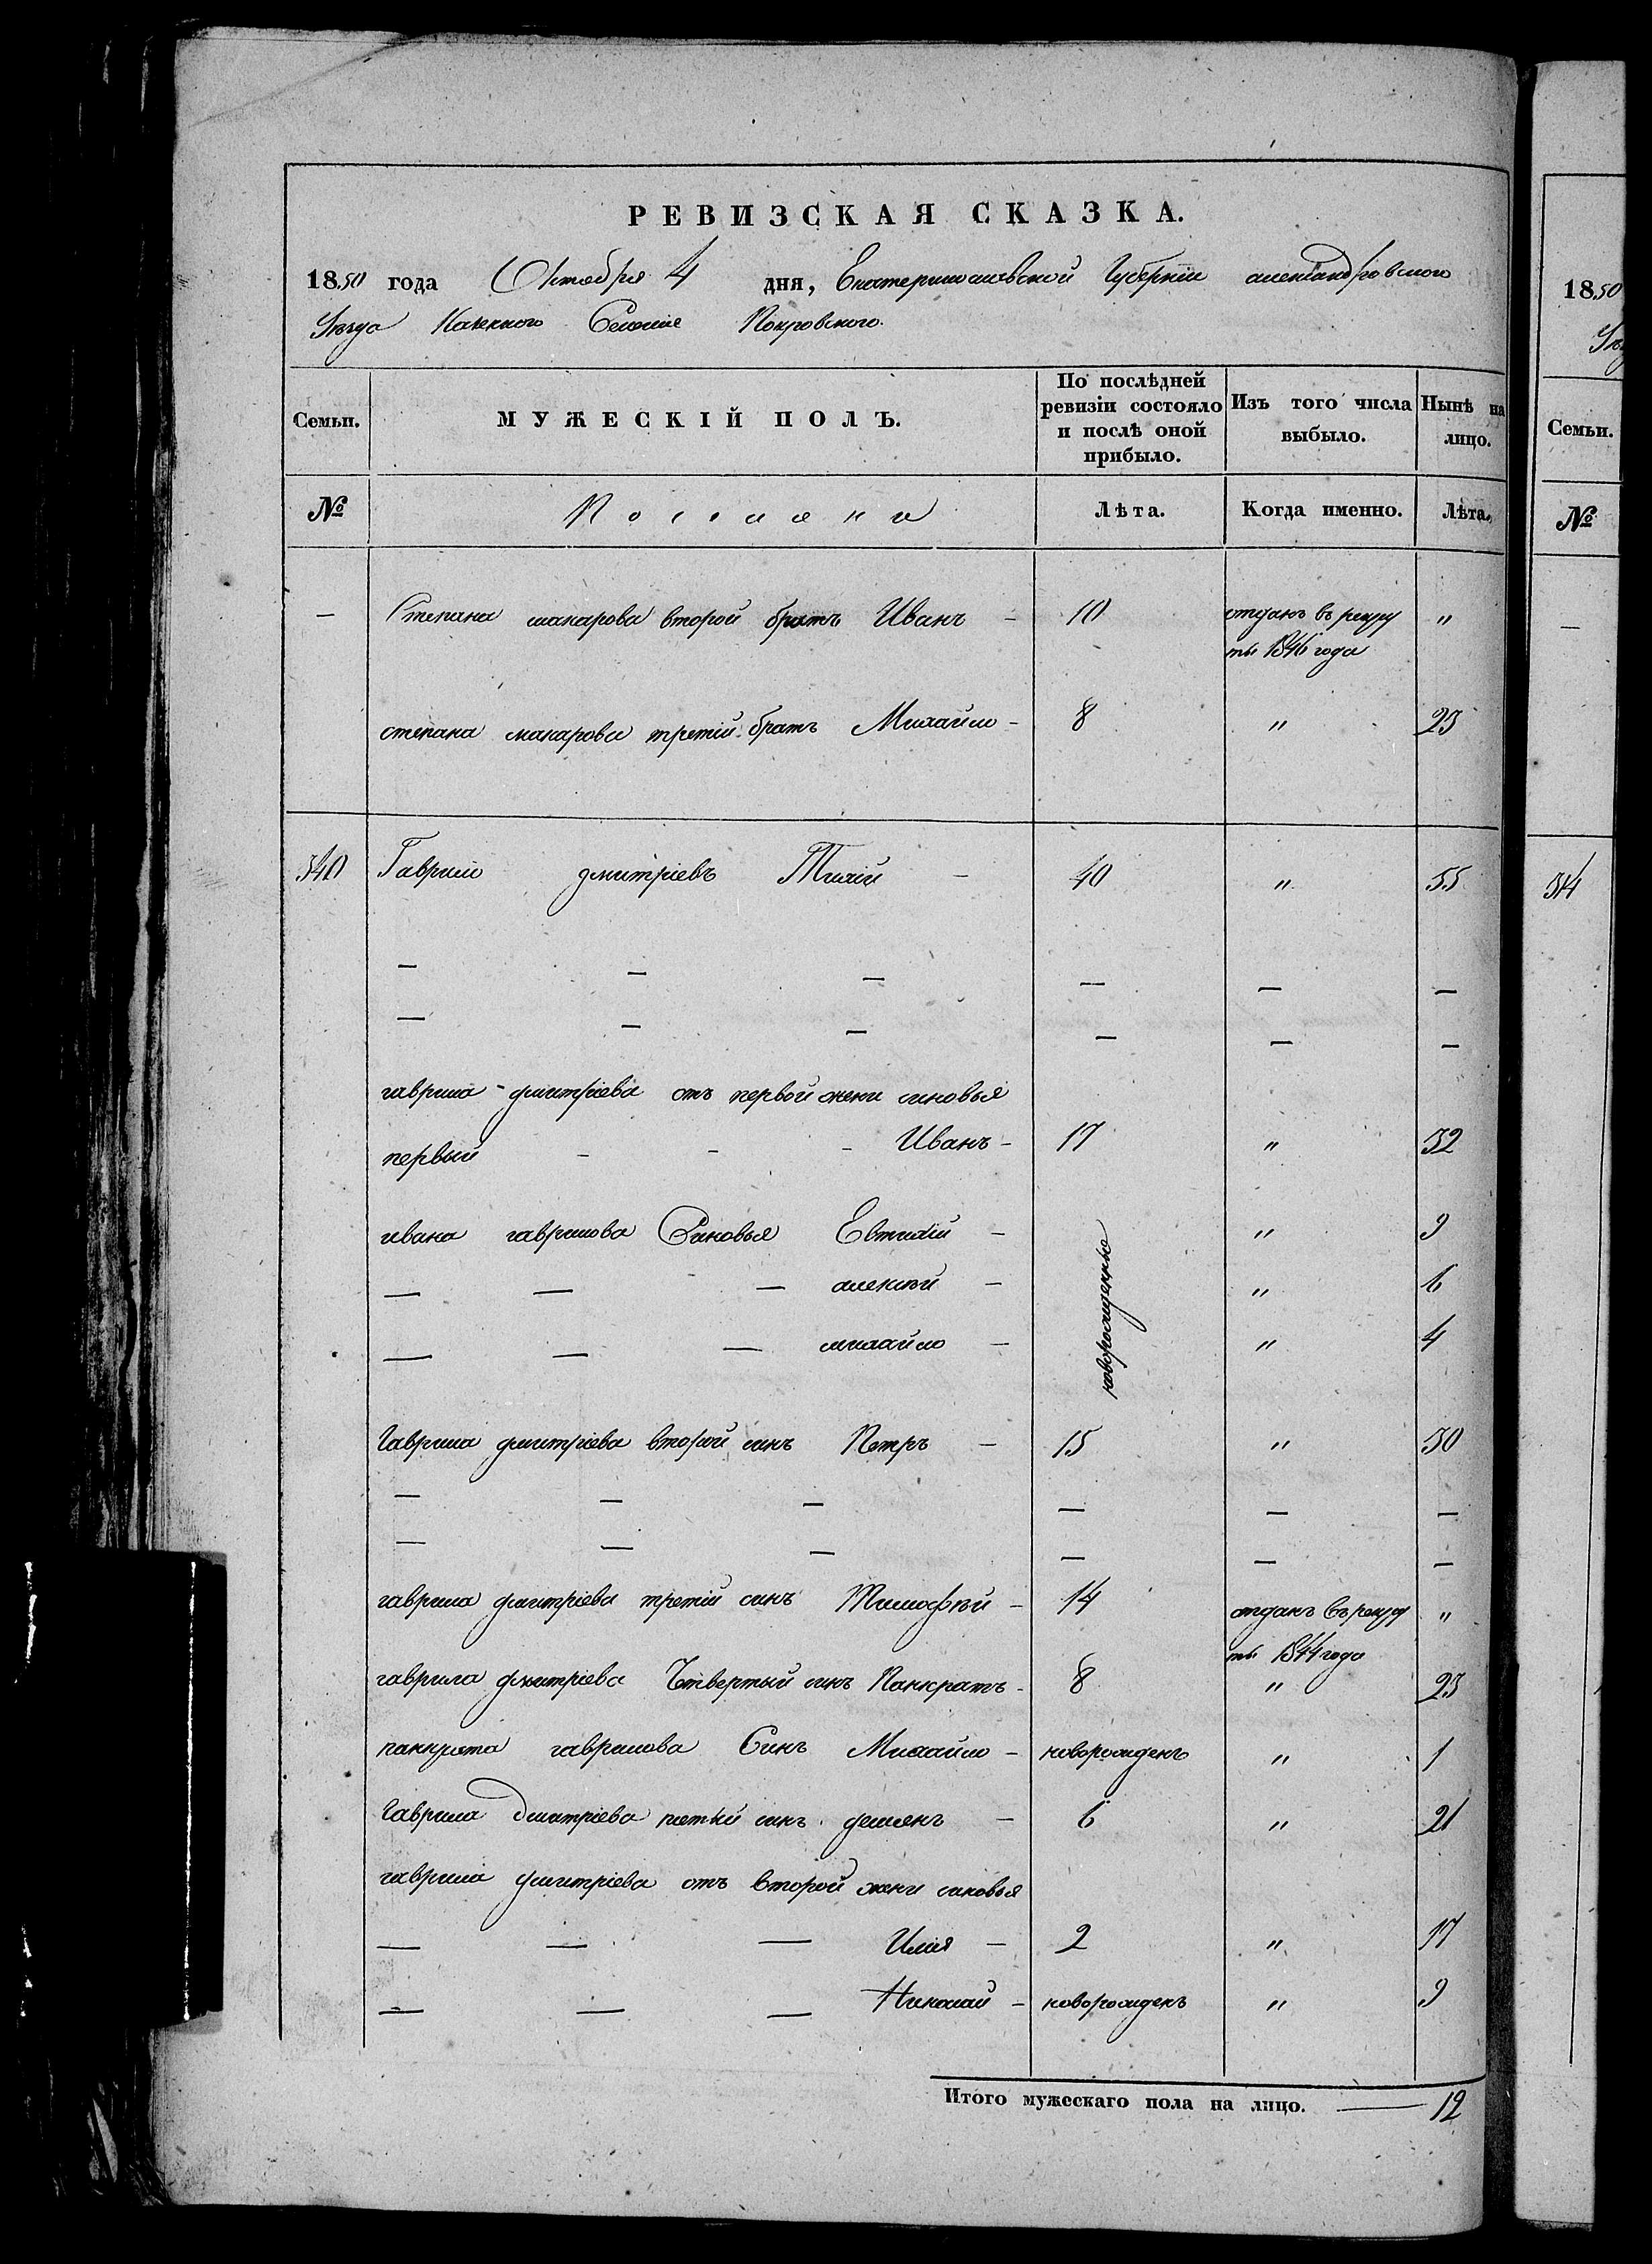 РЕВИЗСКАЯ СКАЗКА.
1850 года Октебря 4 дня, Екатеринославской Губерніи александровского
Уѣзда Казенного Селеніе Покровского.
Семьи. МУЖЕСКІЙ ПОЛЪ. По послѣдней ревизіи состояло и послѣ оной прибыло. Изъ того числа выбыло. Нынѣ на лицо.
№ Поселяне Лѣта. Когда именно. Лѣта.
— Степана макарова второй братъ Иванъ - 10 отданъ въ рекру "
ты 1846 года
степана макарова третій братъ Михайло - 8 " 23
340 Гаврило дмитріевъ Тихій - 40 " 55
— — — — — —
— — — — — —
гаврила дмитріева отъ первой жени синовья
первый - - - Иванъ - 17 " 32
ивана гаврилова Синовья Евтихій - новорожденные " 9
— — — алексѣй - " 6
— — — михайло - " 4
Гаврила дмитріева второй синъ Петръ - 15 " 30
— — — — — —
— — — — — —
гаврила дмитріева третій синъ Тимофѣй - 14 отданъ въ рекру "
ты 1844 года
гаврила дмитріева Четвертый синъ Панкратъ - 8 " 23
панкрата гаврилова Синъ Михайло - новорожденъ " 1
Гаврила Дмитріева пятый синъ демянъ - 6 " 21
гаврила дмитріева отъ второй жени синовья
— — — Илія - 2 " 17
— — — Николай - новорожденъ " 9
Итого мужескаго пола на лицо. — 12
1850
Уѣ
Семьи.
№
—
34